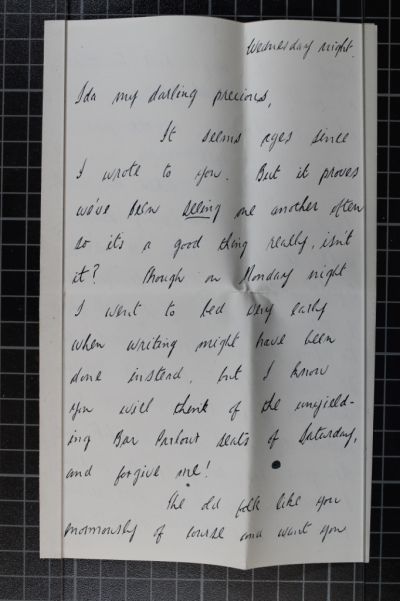 Wednesday night.
Ida my darling precious,
It seems ages since
I wrote to you. But it proves
we've been seeing one another often
so it's a good thing really, isn't
it? Though on Monday night
I went to bed very early
when writing might have been
done instead, but I know
you will think of the unyield-
ing Bar Parlour seats of Saturday,
and forgive me!
The old folk like you
enormously of course and want you